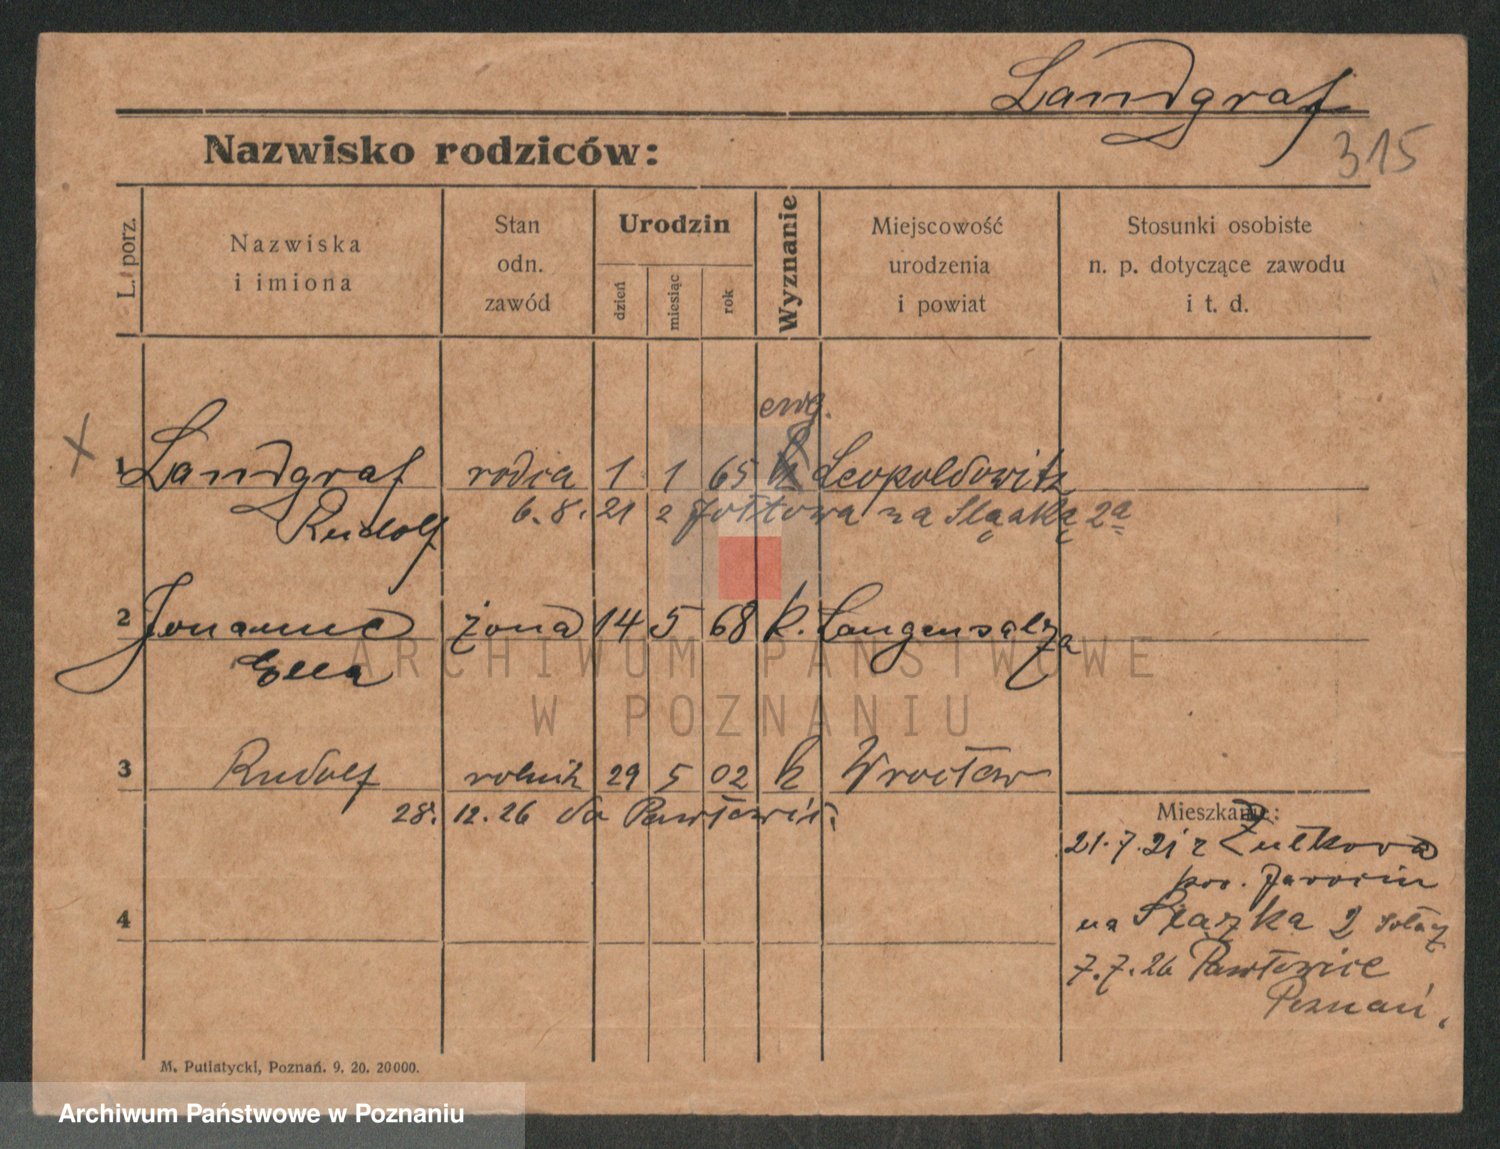 Landgraf
315
Nazwisko rodziców:
L. porz.
Nazwiska
i imiona
Stan
odn.
zawód
Urodzin
dzień
miesiąc
rok
Wyznanie
Miejscowość
urodzenia
i powiat
Stosunki osobiste
n. p. dotyczące zawodu
i t. d.
ewg.
1 Landgraf 1 1 65 Leopoldowitz
Rudolf 6. 8. 21 z na Śląską 2a
2 żona 14 5 68 k. Langensalza
Ella
3 Rudolf rolnik 29 5 02 k Wrocław
28. 12. 26 do
Mieszkanie:
21.7.21 z Żułkowa
pow. Jarocin
4
na 2
7.7.26 Pawłowice
Poznań.
M. Putiatycki, Poznań. 9. 20. 20000.
ARCHIWUM PAŃSTWOWE
W POZNANIU
Archiwum Państwowe w Poznaniu